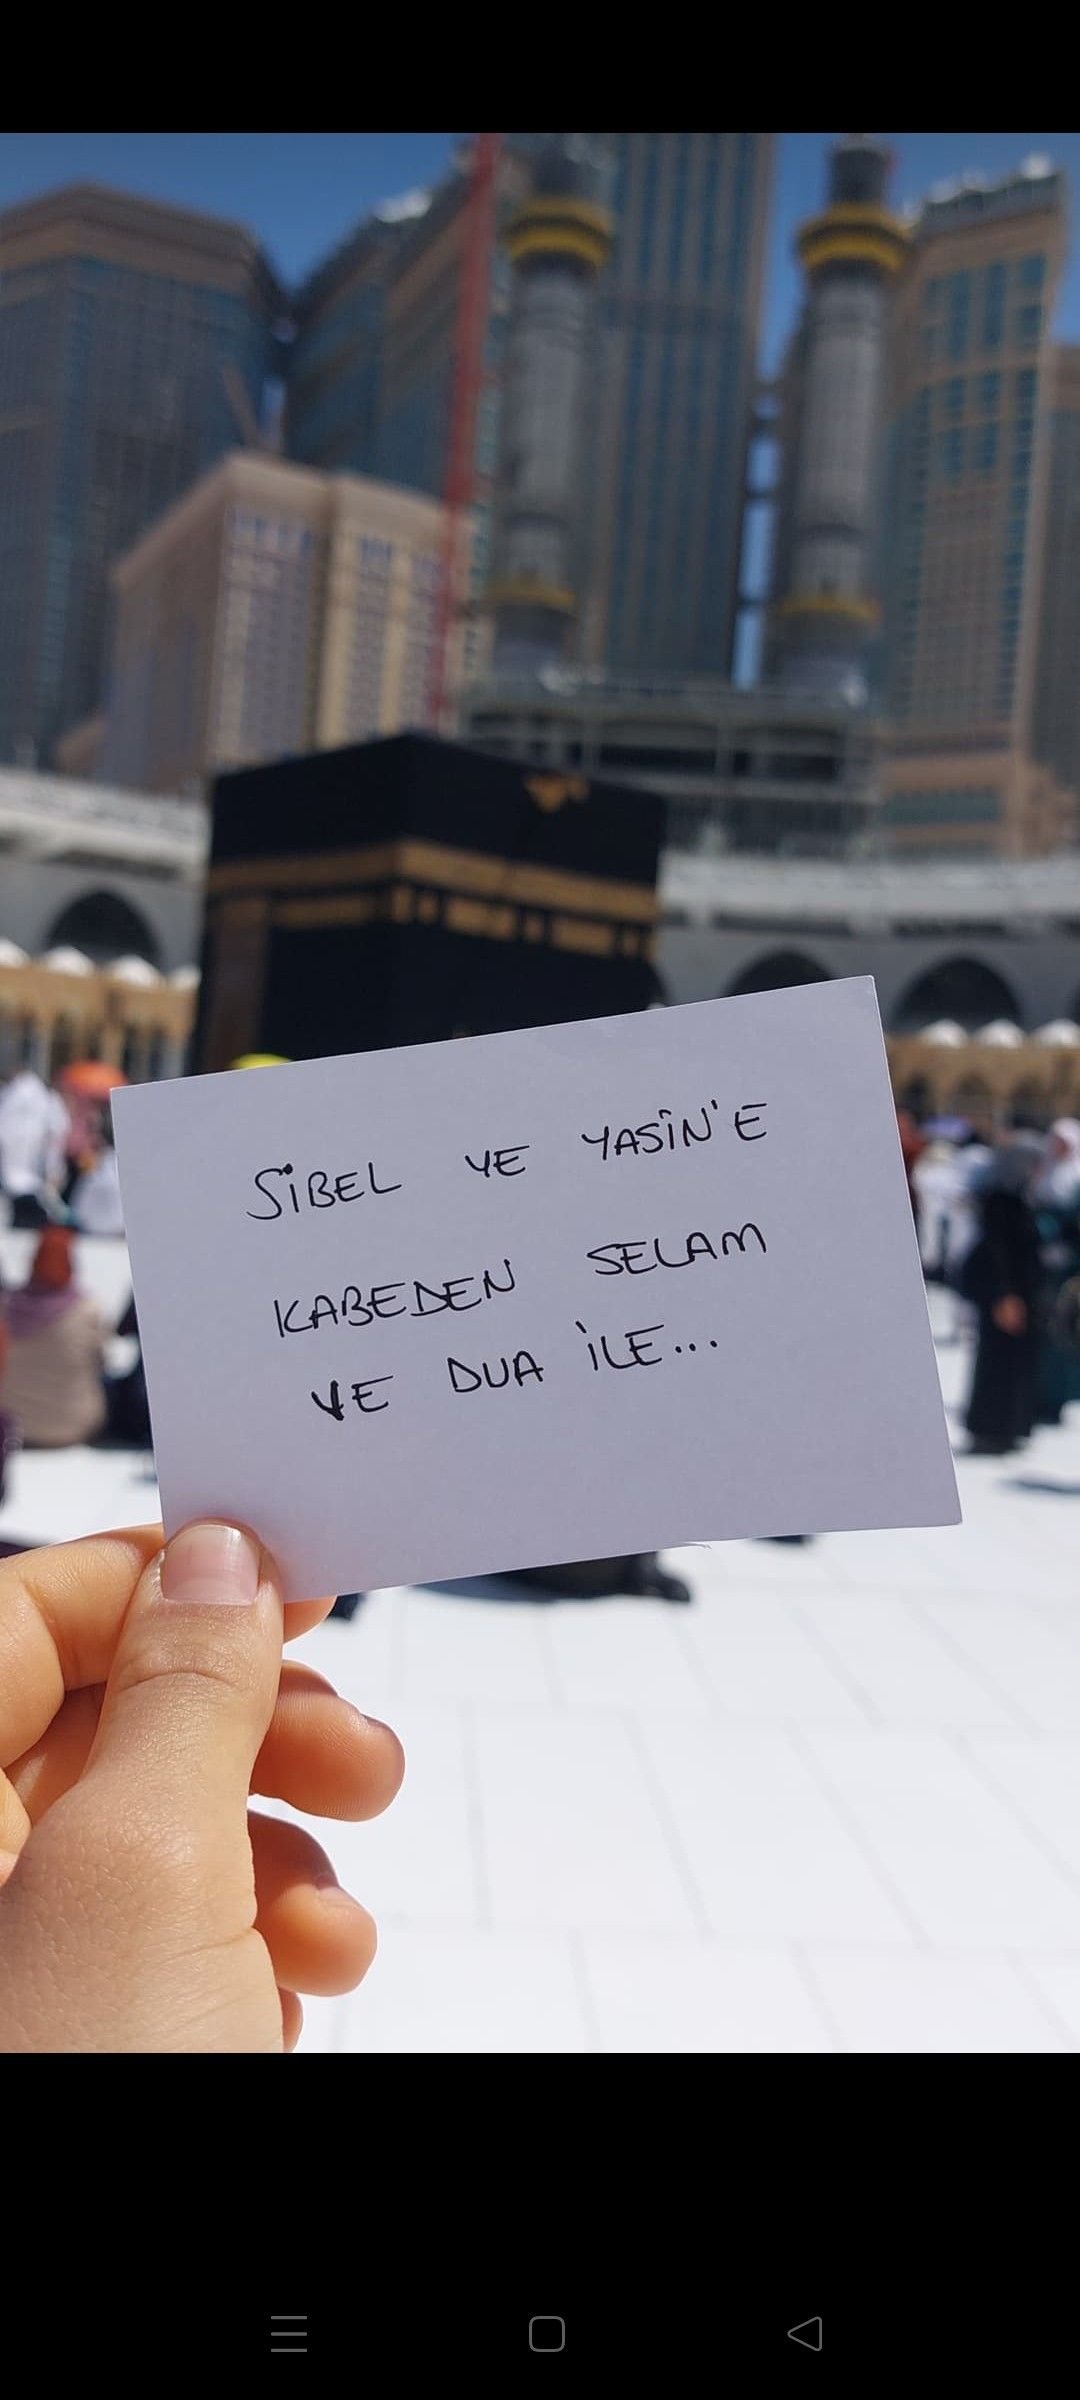 SİBEL VE YASİN'E
KABEDEN SELAM
VE DUA İLE...